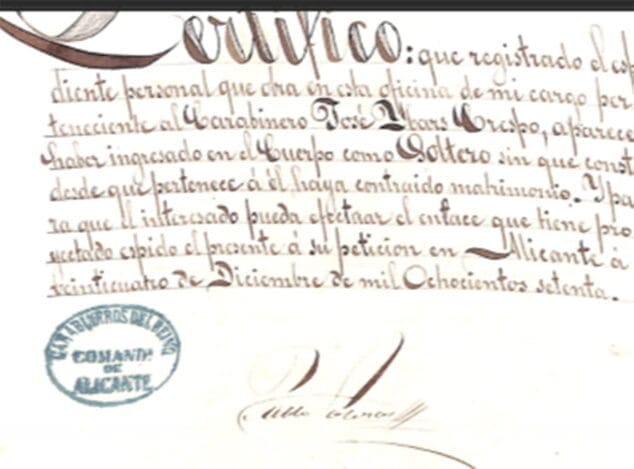 Certifico: que registrado el esp
diente personal que obra en esta oficina de mi cargo per
teneciente al Carabinero José Ybars Crespo, aparece
haber ingresado en el Cuerpo como Soltero sin que const
desde que pertenece á él haya contraido matrimonio. Y pa
ra que el interesado pueda efectuar el enlace que tiene pro
yectado espido el presente á su peticion en Alicante á
veinticuatro de Diciembre de mil Ochocientos setenta.
CARABINEROS DEL REINO
COMAND.ª
DE
ALICANTE